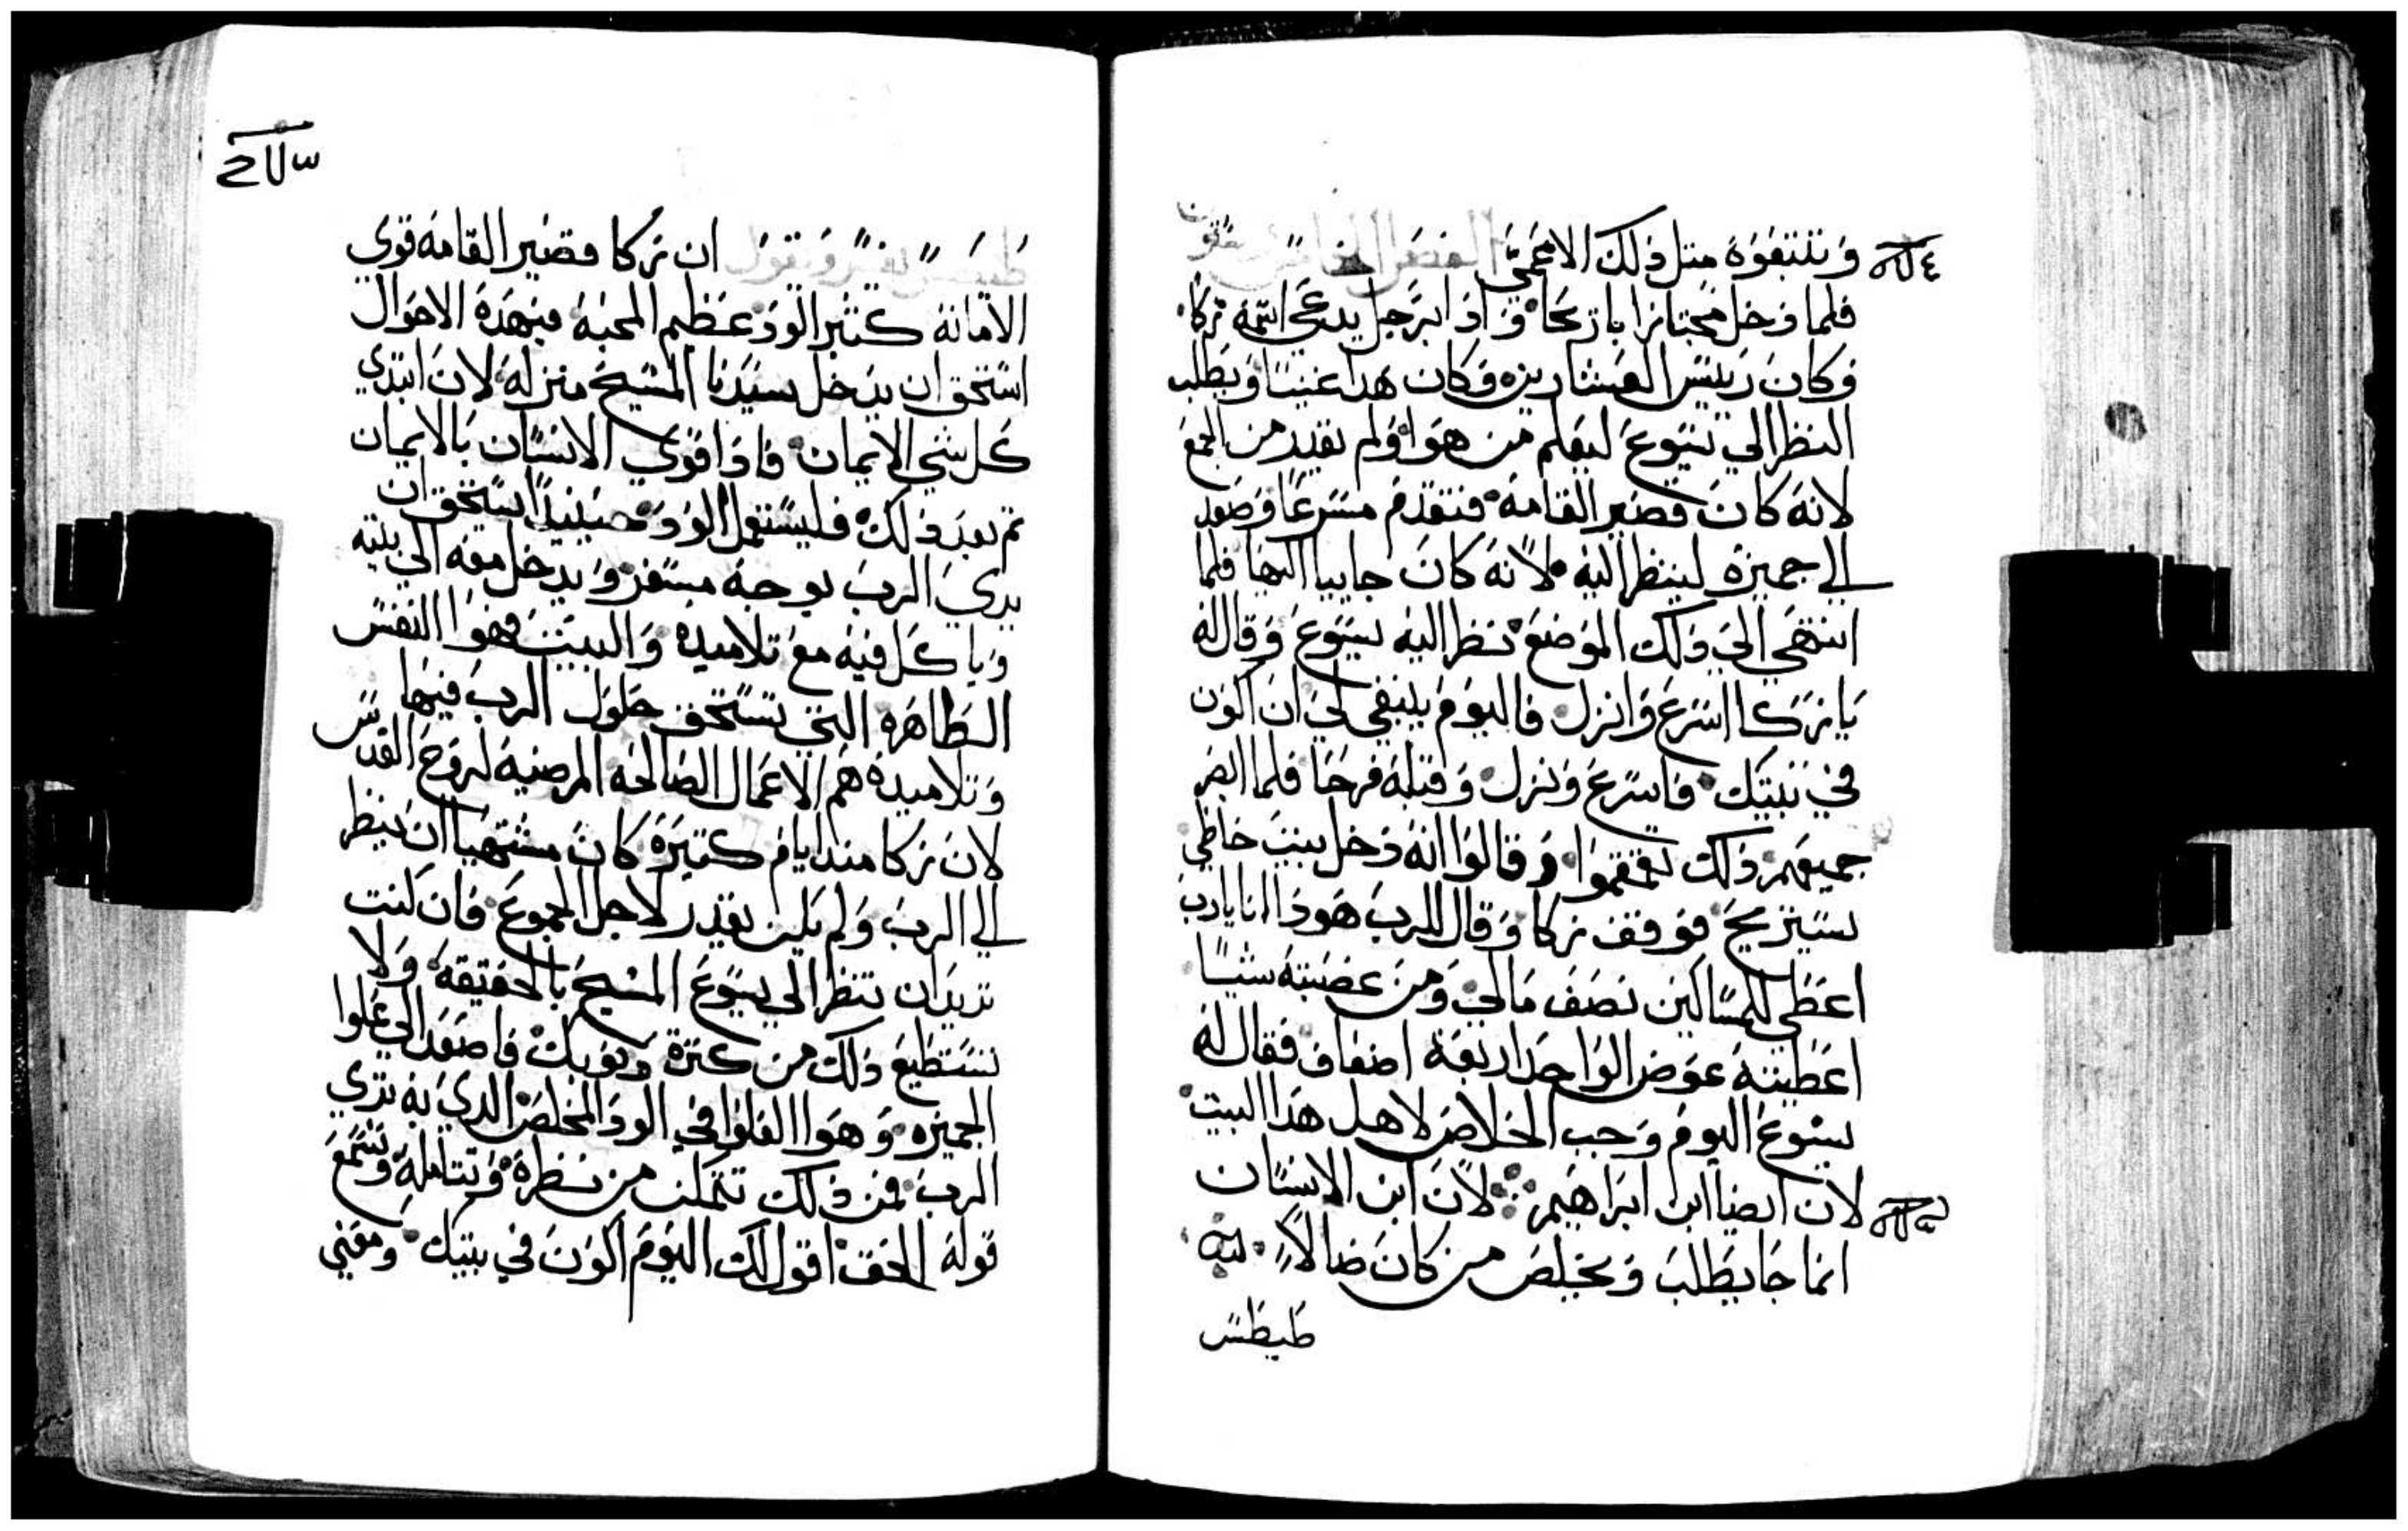 وتتبعوه متل دلك الاعمي الفصل الخامس وستون
فلما دخل مجتازا باريحا وادا برجل يدعي اسمه زكا
وكان رييس العشارين وكان هدا غنيا ويطلب
النظر الي يسوع ليعلم من هوا ولم يقدر من الجمع
لانه كان قصير القامه فتقدم مسرعا وصعد
الي جميزه لينظر اليه لانه كان جاييا اليها فلما
انتهي الي دلك الموضع نظر اليه يسوع وقال له
يا زكا اسرع وانزل فاليوم ينبغي لي ان اكون
في بيتك فاسرع ونزل وقبله فرحا فلما ابصر
جميعهم دلك تقمقموا وقالوا انه دخل بيت خاطي
يستريح فوقف زكا وقال للرب هودا انا يارب
اعطي للمساكين نصف مالي ومن غصبته شيا
اعطيته عوض الواحد اربعة اضعاف فقال له
يسوع اليوم وجب الخلاص لاهل هدا البيت
لان ايضا ابن ابراهيم لان ابن الانسان
انما جا يطلب ويخلص من كان ضالا
طيطس
طيطس يفسر ويقول ان زكا قصير القامه قوي
الامانه كتير الود عظيم المحبه فبهده الاحوال
استحق ان يدخل سيدنا المسيح منزله لان ابتدي
كل شي الايمان فادا قوي الانسان بالايمان
تم بعد دلك فليستعمل الود حينيدا يستحق ان
يري الرب بوجه مسفر ويدخل معه الي بيته
وياكل فيه مع تلاميده والبيت فهوا النفس
الطاهره التي تستحق حلول الرب فيها
وتلاميده هم الاعمال الصالحه المرضيه لروح القدس
لان زكا مند ايام كتيره كان مشتهيا ان ينظر
الي الرب ولم يكن يقدر لاجل الجموع فان كنت
تريد ان تنظر الي يسوع المسيح بالحقيقه ولا
تستطيع دلك من كترة دنوبك فاصعد الي علوا
الجميزه وهوا العلوا في الود المخلص الدي به تري
الرب فمن دلك تتمكن من نظره وتتامله وتسمع
قوله الحق اقول لك اليوم اكون في بيتك ومعني